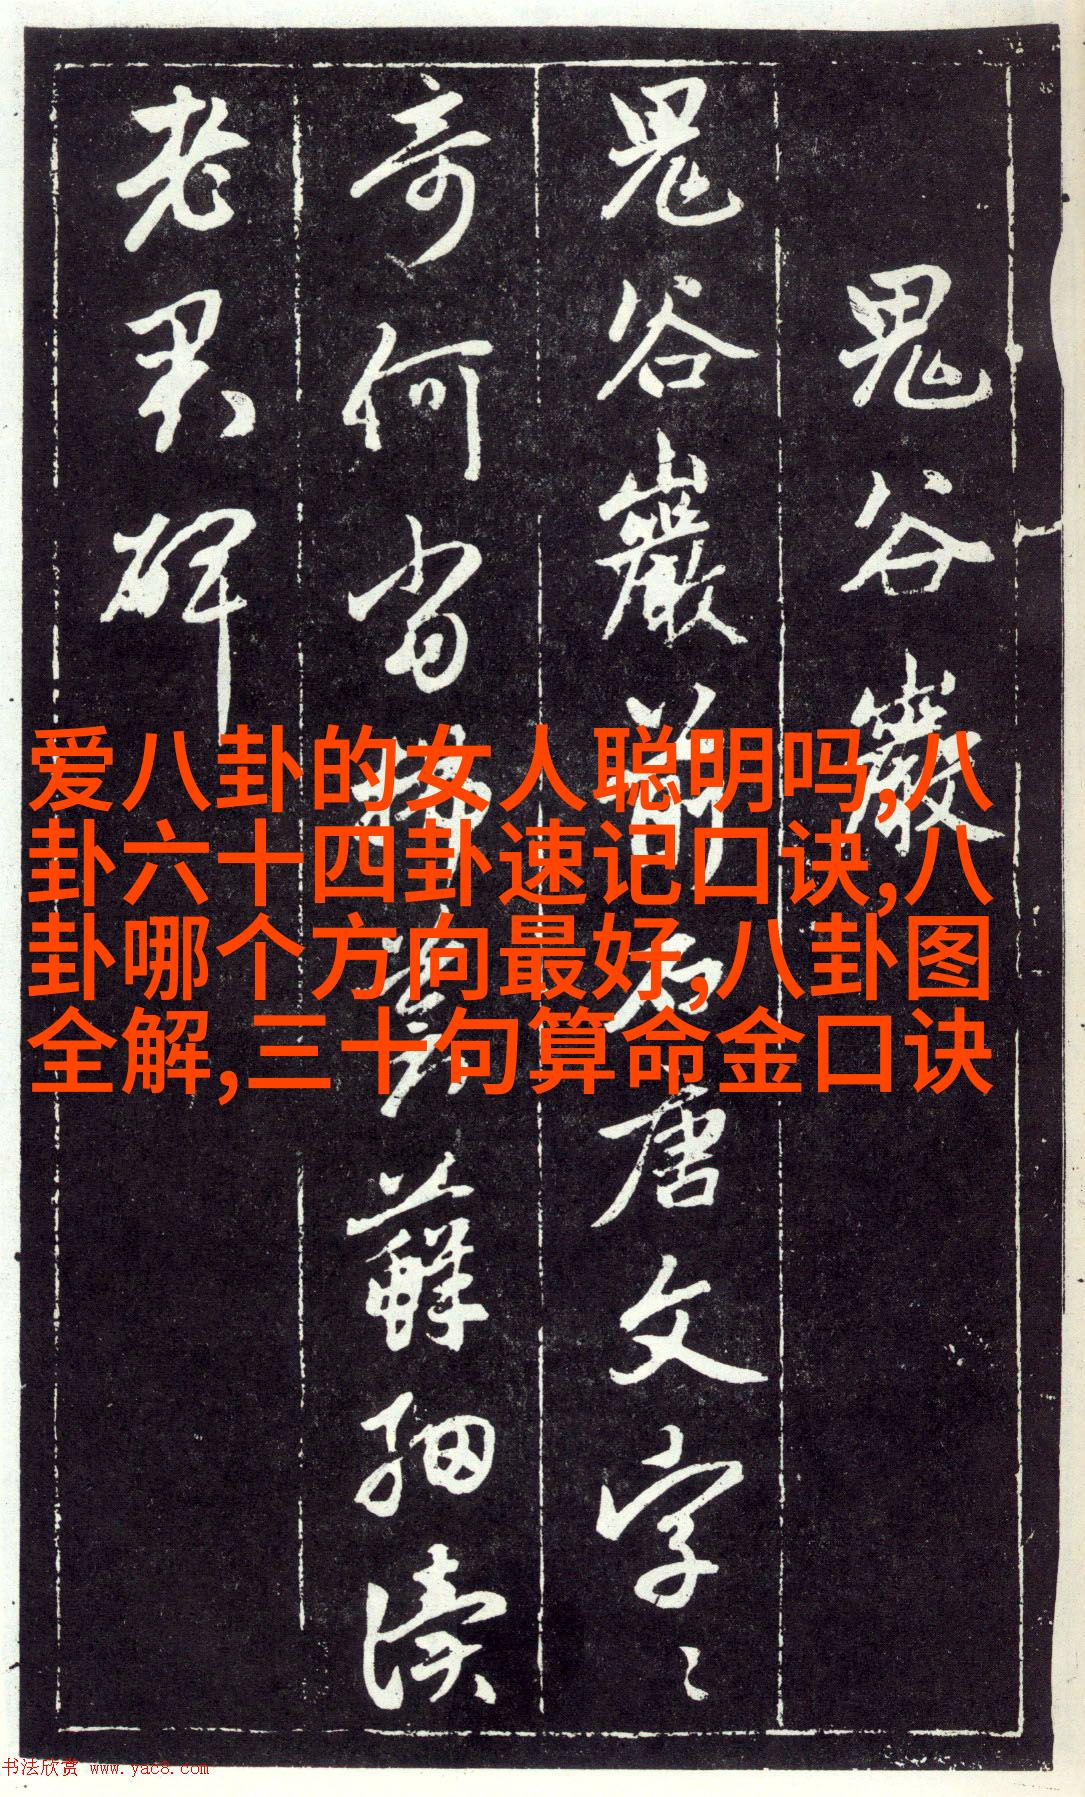 鬼谷巖
鬼谷巖前唐文字〻
奇何當掃蘚細讀
老君碑
爱八卦的女人聪明吗,八
卦六十四卦速记口诀,八
卦哪个方向最好,八卦图
全解,三十句算命金口诀
书法欣赏 www.yac8.com